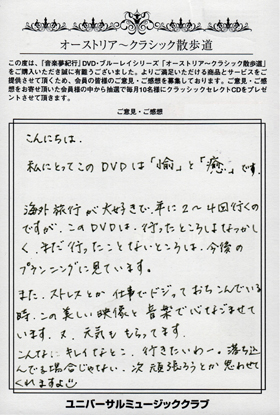 オーストリア～クラシック散歩道
この度は、「音楽夢紀行」DVD・ブルーレイシリーズ「オーストリア～クラシック散歩道」
をご購入いただき誠に有難うございました。よりご満足いただける商品とサービスをご
提供させて頂くため、会員の皆様のご意見・ご感想を募集しております。ご意見・ご感
想をお寄せ頂いた会員様の中から抽選で毎月10名様にクラシックセレクトCDをプレ
ゼントさせて頂きます。
ご意見・ご感想
こんにちは。
私にとってこのDVDは「愉」と「癒」です。
海外旅行が大好きで、年に2～4回行くので
すが、このDVDは、行ったところはなつかし
く、まだ行ったことないところは、今後の
プランニングに見ています。
また、ストレスとか仕事でドジっておちこんでいる
時、この美しい映像と音楽で心なごませて
います。又、元気ももらってます。
こんなにキレイなとこ、行きたいわー。落ち込
んでる場合じゃない。次 頑張ろうとか思わせて
くれますよ
ユニバーサルミュージッククラブ